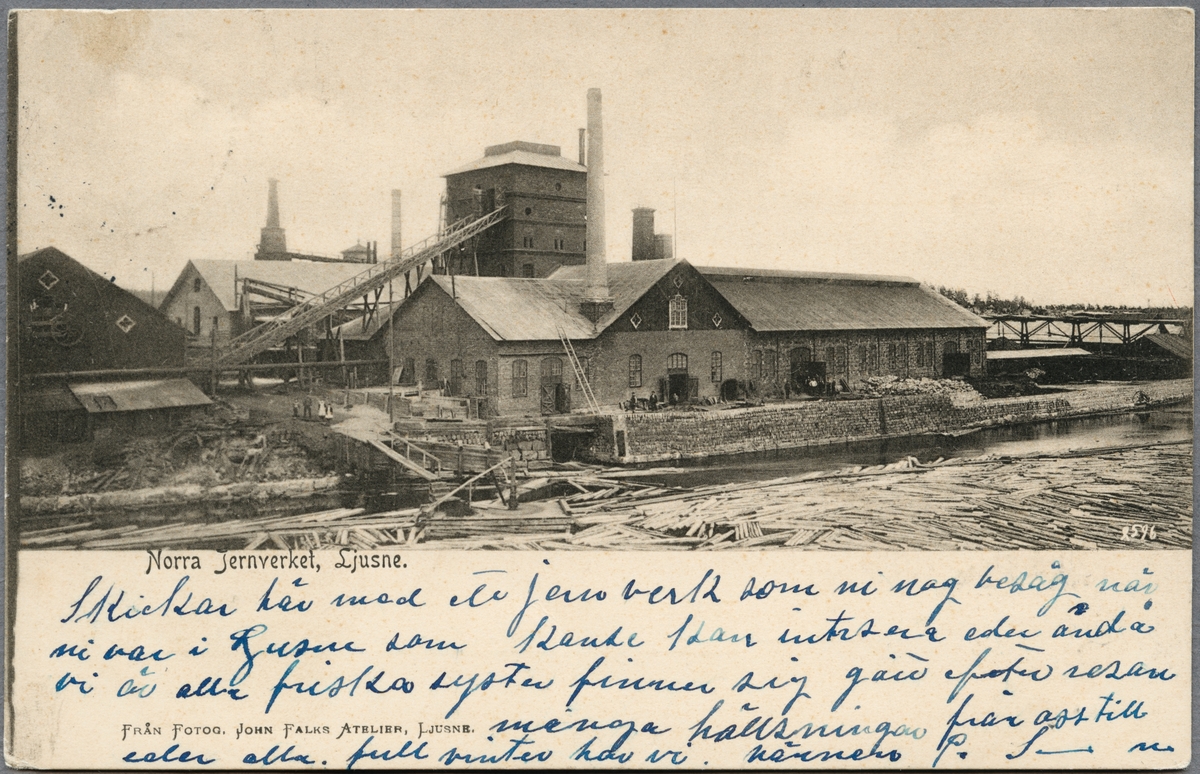 8596
Norra Jernverket, Ljusne.
Skickar här med ett jernverk som ni nog besåg när
ni var i Ljusne som kanse kan intrsera eder ändå
vi är alla friska syster finner sig gått efter resan
FRÅN FOTOG. JOHN FALKS ATELIER, LJUSNE.
många hälsningar från oss till
eder alla. full vinter har vi.